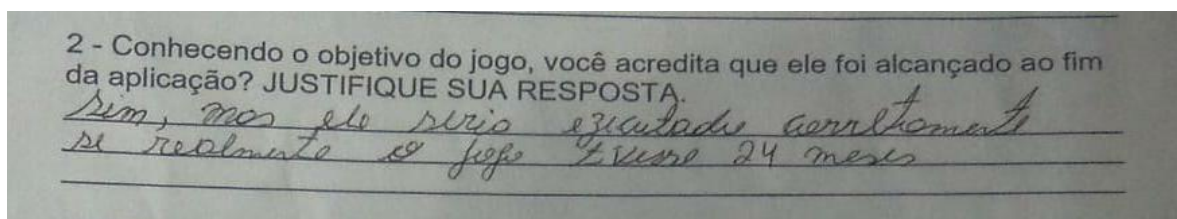 2 - Conhecendo o objetivo do jogo, você acredita que ele foi alcançado ao fim
da aplicação? JUSTIFIQUE SUA RESPOSTA.
Sim, mas ele seria ezecutado corretamente
se realmente o jogo tivesse 24 meses